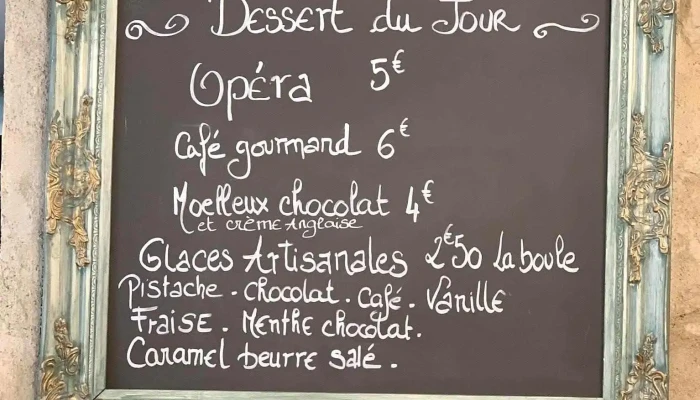 Dessert du Jour
Opéra 5€
Café gourmand 6€
Moelleux chocolat 4€
et crème Anglaise
Glaces Artisanales 2€50 La boule
Pistache . Chocolat . Café . Vanille
Fraise . Menthe chocolat .
Caramel beurre salé .